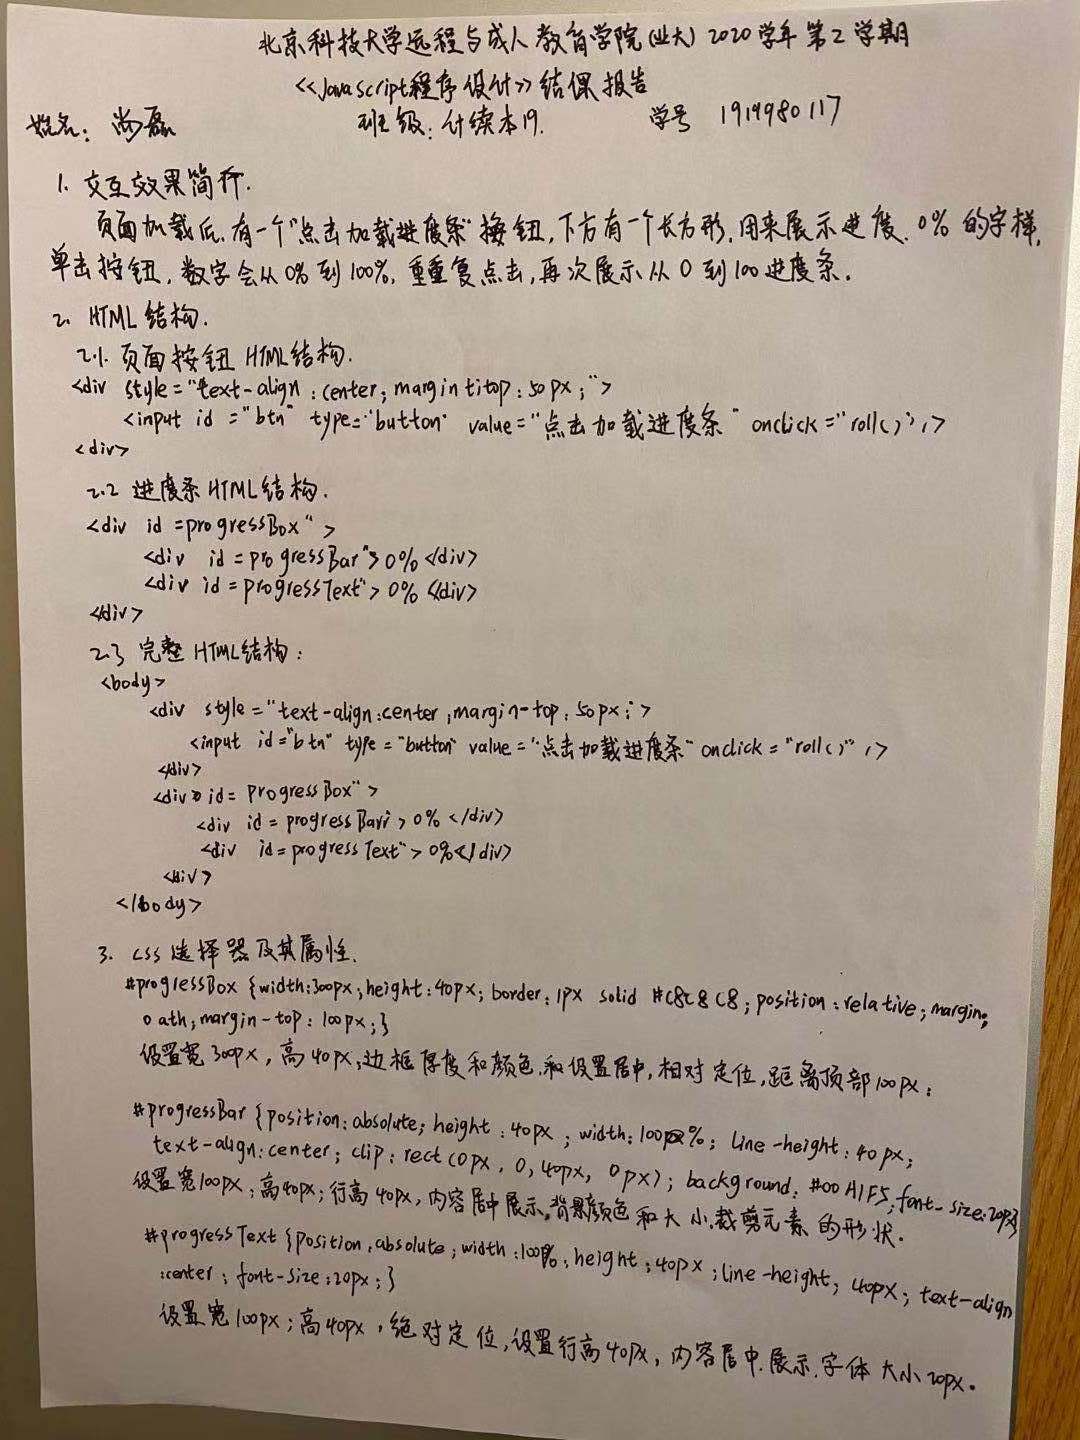 北京科技大学远程与成人教育学院(业大) 2020学年 第2学期
<<Javascript程序设计>> 结课报告
姓名: 尚磊 班级: 计续本19. 学号 1919980117
1. 交互效果简介.
页面加载后, 有一个"点击加载进度条"按钮, 下方有一个长方形, 用来展示进度, 0% 的字样,
单击按钮, 数字会从0%到100%, 重重复点击, 再次展示从0到100进度条.
2. HTML结构.
2.1. 页面按钮 HTML结构.
<div style="text-align:center; margin titop:50px;">
<input id ="btn" type="button" value="点击加载进度条" onclick="roll()"/>
<div>
2.2 进度条 HTML结构.
<div id =progressBox">
<div id = progressBar">0%</div>
<div id = progressText">0%</div>
</div>
2.3 完整 HTML结构:
<body>
<div style="text-align:center,margin-top:50px;">
<input id="btn" type="button" value="点击加载进度条" onclick="roll()" />
</div>
<div id= progressBox">
<div id = progressBar">0%</div>
<div id=progressText">0%</div>
<div>
</body>
3. css选择器及其属性.
#progressBox {width:300px;height:40px; border:1px solid #c8c8c8; position:relative; margin:
0 ath; margin-top:100px;}
设置宽300px, 高40px, 边框厚度和颜色, 和设置居中, 相对定位, 距离顶部100px;
#progressBar {position:absolute; height:40px; width:100%; line-height:40px;
text-align:center; clip:rect(0px, 0, 40px, 0px); background:#00A1F5; font-size:20px}
设置宽100px; 高40px; 行高40px, 内容居中展示, 背景颜色和大小, 裁剪元素的形状.
#progressText {position,absolute; width:100%, height:40px; line-height; 40px; text-align
:center; font-size:20px;}
设置宽100px; 高40px, 绝对定位, 设置行高40px, 内容居中展示, 字体大小20px.